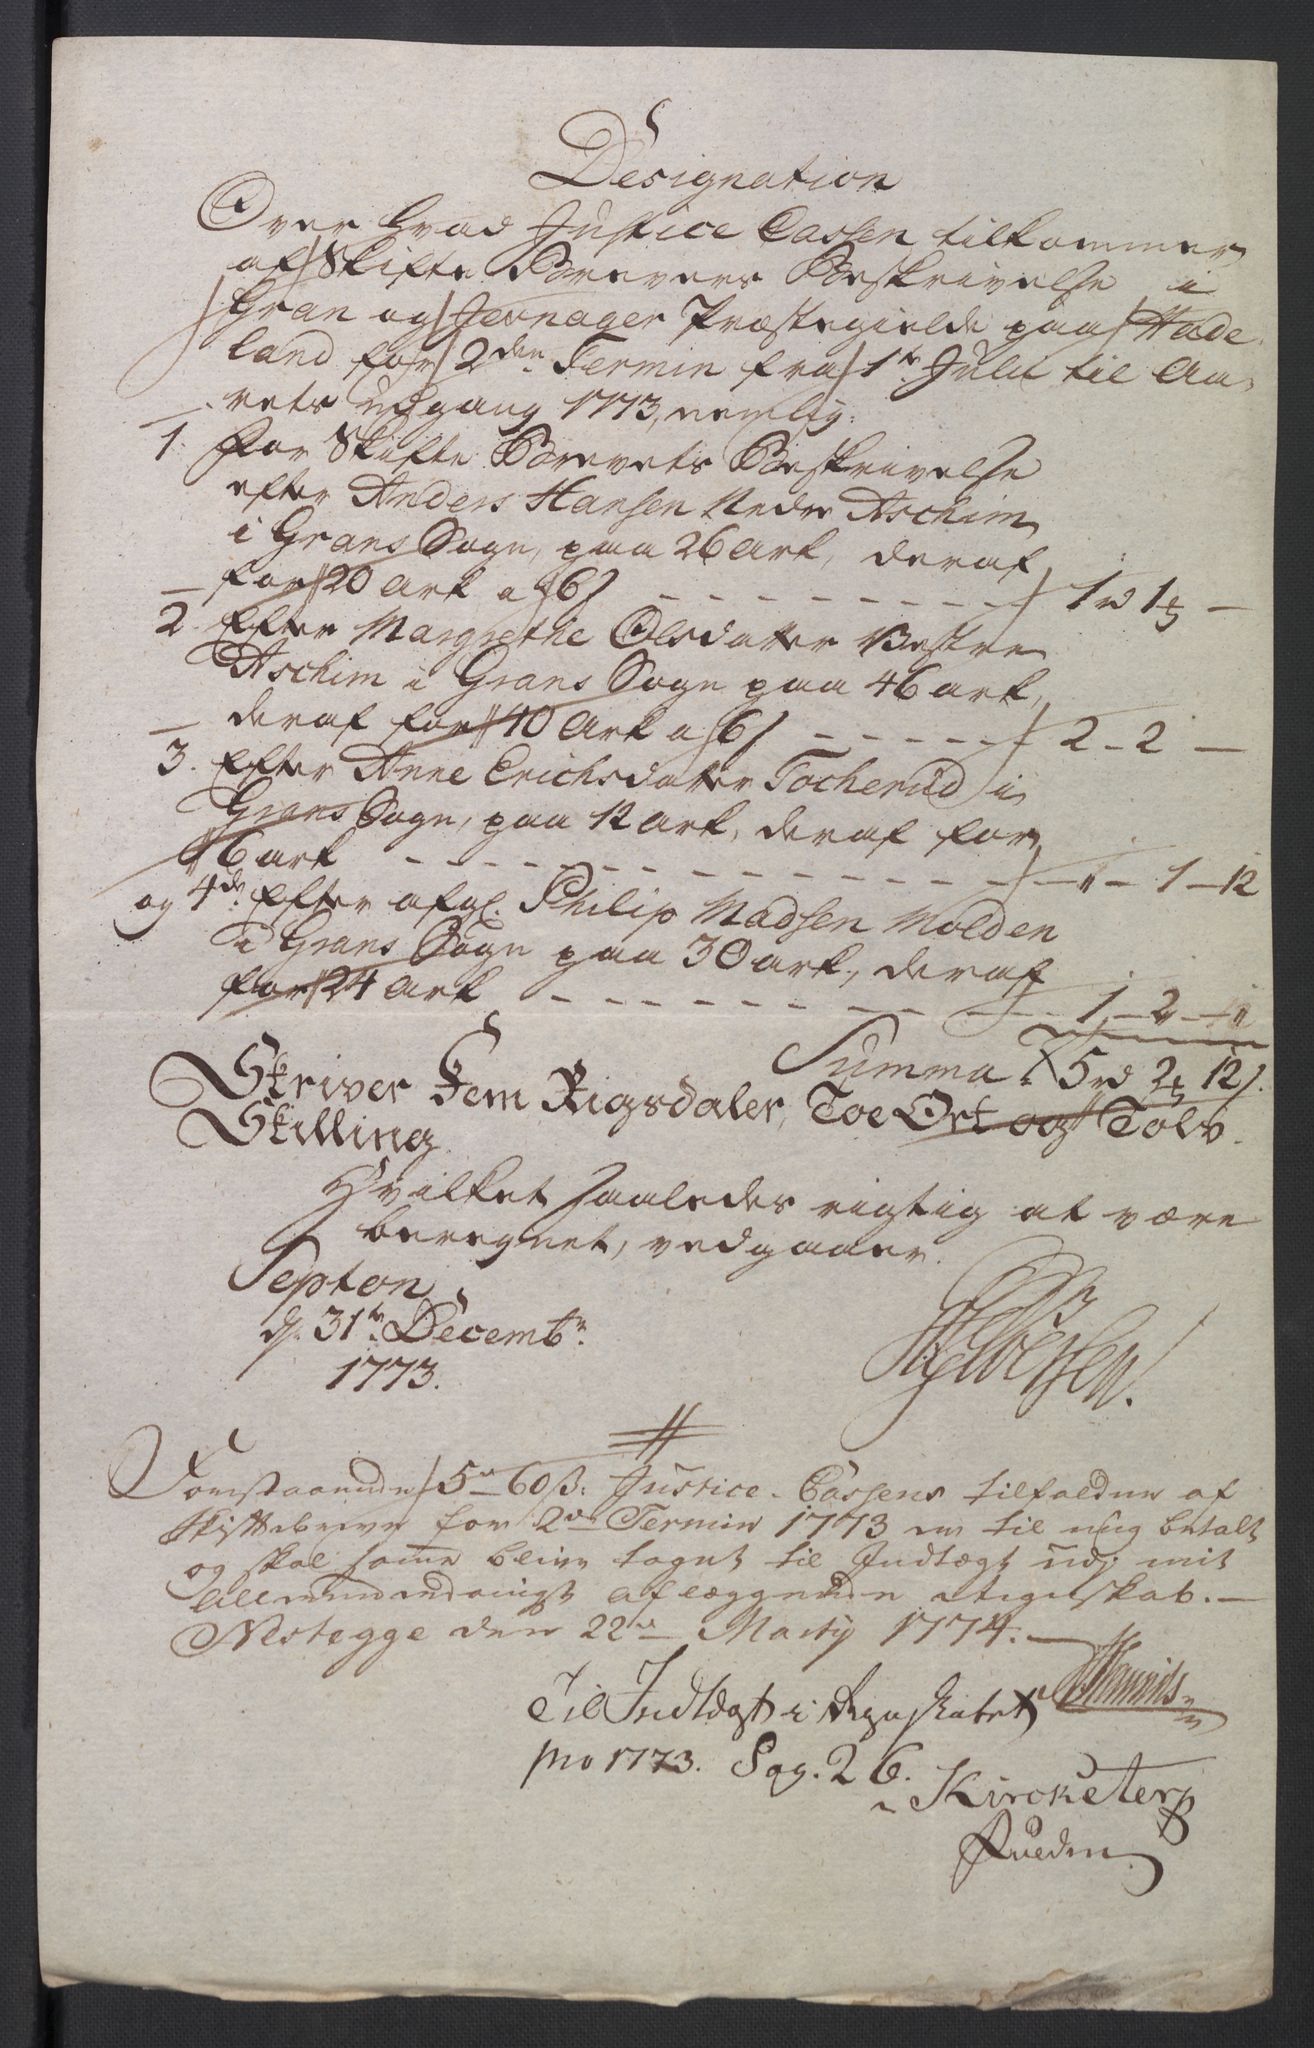 Designation
Over hvad Justice Cassen tilkommer
af Skifte Brevers Beskrivelse i
Gran og Jevnager Præstegielde paa Hade-
land for 2den Termin fra 1te Julii til Aa-
rets udgang 1773, nemlig:
1. For Skifte Brevets Beskrivelse
efter Anders Hansen Nedre Aschim
i Grans Sogn, paa 26 Ark, deraf
for 20 Ark a 6 s - - - 1 rd 1 ort —
2. Efter Margrethe Olsdatter Vestre
Aschim i Grans Sogn paa 46 ark,
deraf for 40 Ark a 6 s - - - 2 - 2 —
3. Efter Anne Erichsdatter Tocherud i
Grans Sogn, paa 12 ark, deraf for
6 ark - - - " - 1 - 12
og 4de Efter afgl. Philip Madsen Molden
i Grans Sogn paa 30 ark, deraf
for 24 Ark - - - 1 - 2 - "
Summa 5 rd 2 ort 12 s.
Skriver Fem Rigsdaler, Toe Ort og Tolv
Skilling.
Hvilket saaledes rigtig at være
beregnet, vedgaaer.
Septon
d. 31te Decembr.
1773.
Foranstaaende 5 rd 60 ß. Justice-Cassens tilfaldne af
Skiftebreve for 2den Termin 1773 er til mig betalt
og skal samme blive taget til Indtægt udj mit
allerunderdanigst aflæggende Regnskab. —
Nestegge den 22de Martij 1774. —
Til Indtægt i Regnskabet
pro 1773. Pag. 26.
Kircketerp